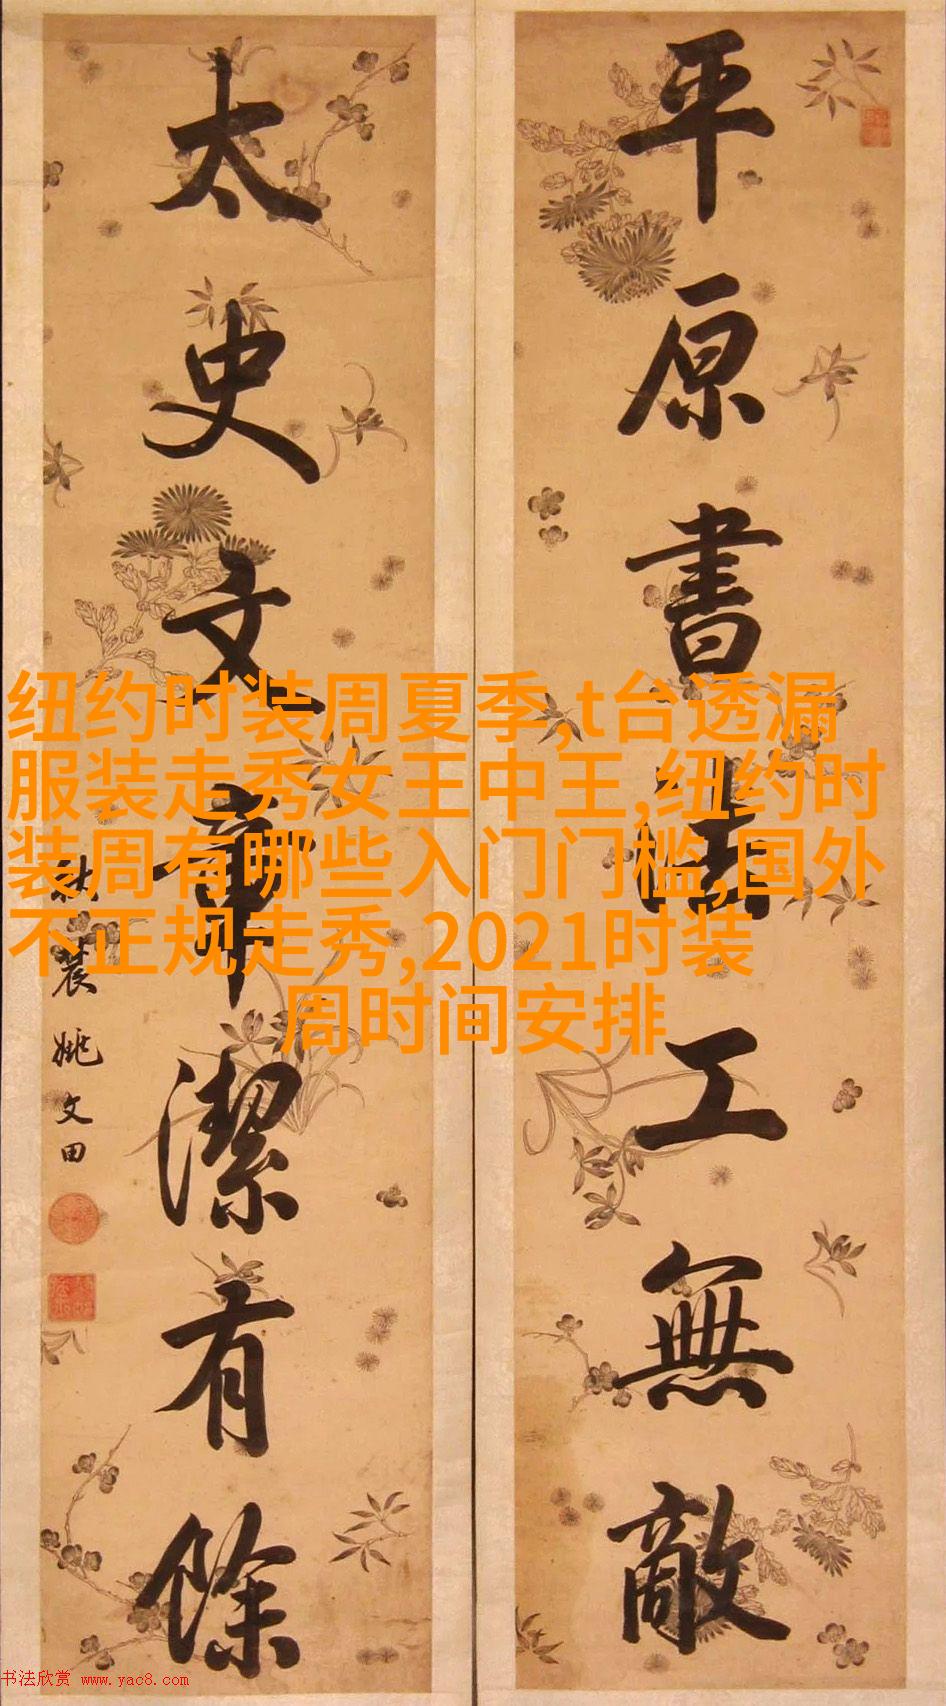 平原書法工無敵
太史文章潔有餘
秋農姚文田
纽约时装周夏季,t台透漏
服装走秀女王中王,纽约时
装周有哪些入门门槛,国外
不正规走秀,2021时装
周时间安排
书法欣赏 www.yac8.com